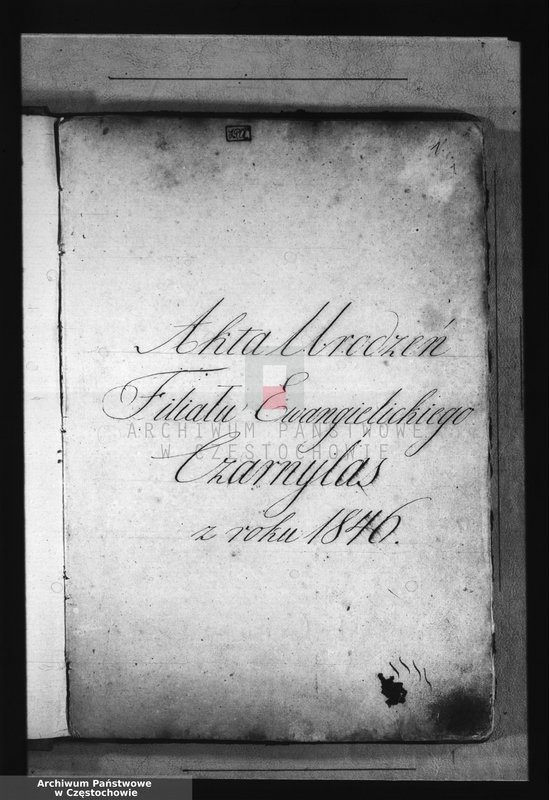 1.
Akta Urodzeń
Filiału Ewangielickiego
Czarnylas
z roku 1846.
ARCHIWUM PAŃSTWOWE
W CZĘSTOCHOWIE
Archiwum Państwowe
w Częstochowie